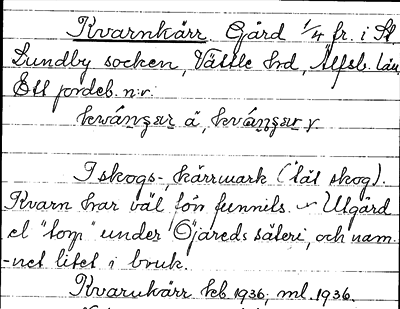 Kvarnkärr. Gård 1/4 fr. i St.
Lundby socken, Vättle hd, Älfsb. län
Ett jordeb. n:r.
I skogs-, kärrmark ("lät skog).
Kvarn har väl förr funnits. Utgård
el "torp" under Öjareds säteri, och nam-
-net litet i bruk.
Kvarnkärr kb 1936; ml. 1936.